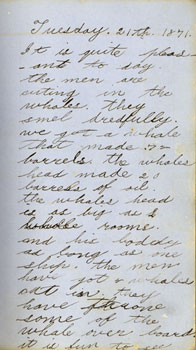 Tuesday. 21th. 1871.
It is quite pleas-
-ant to say
the men are
cuting in the
whales. they
smel dredfully.
we got a whale
that made 
barrels. the whales
head made 20
barress of oil.
the whales head
is as big as 2
rooms.
and his boddy
as long as one
ship. the men
have got 2 whales
they
have throne
some of the
whale over-board
it is fun to see